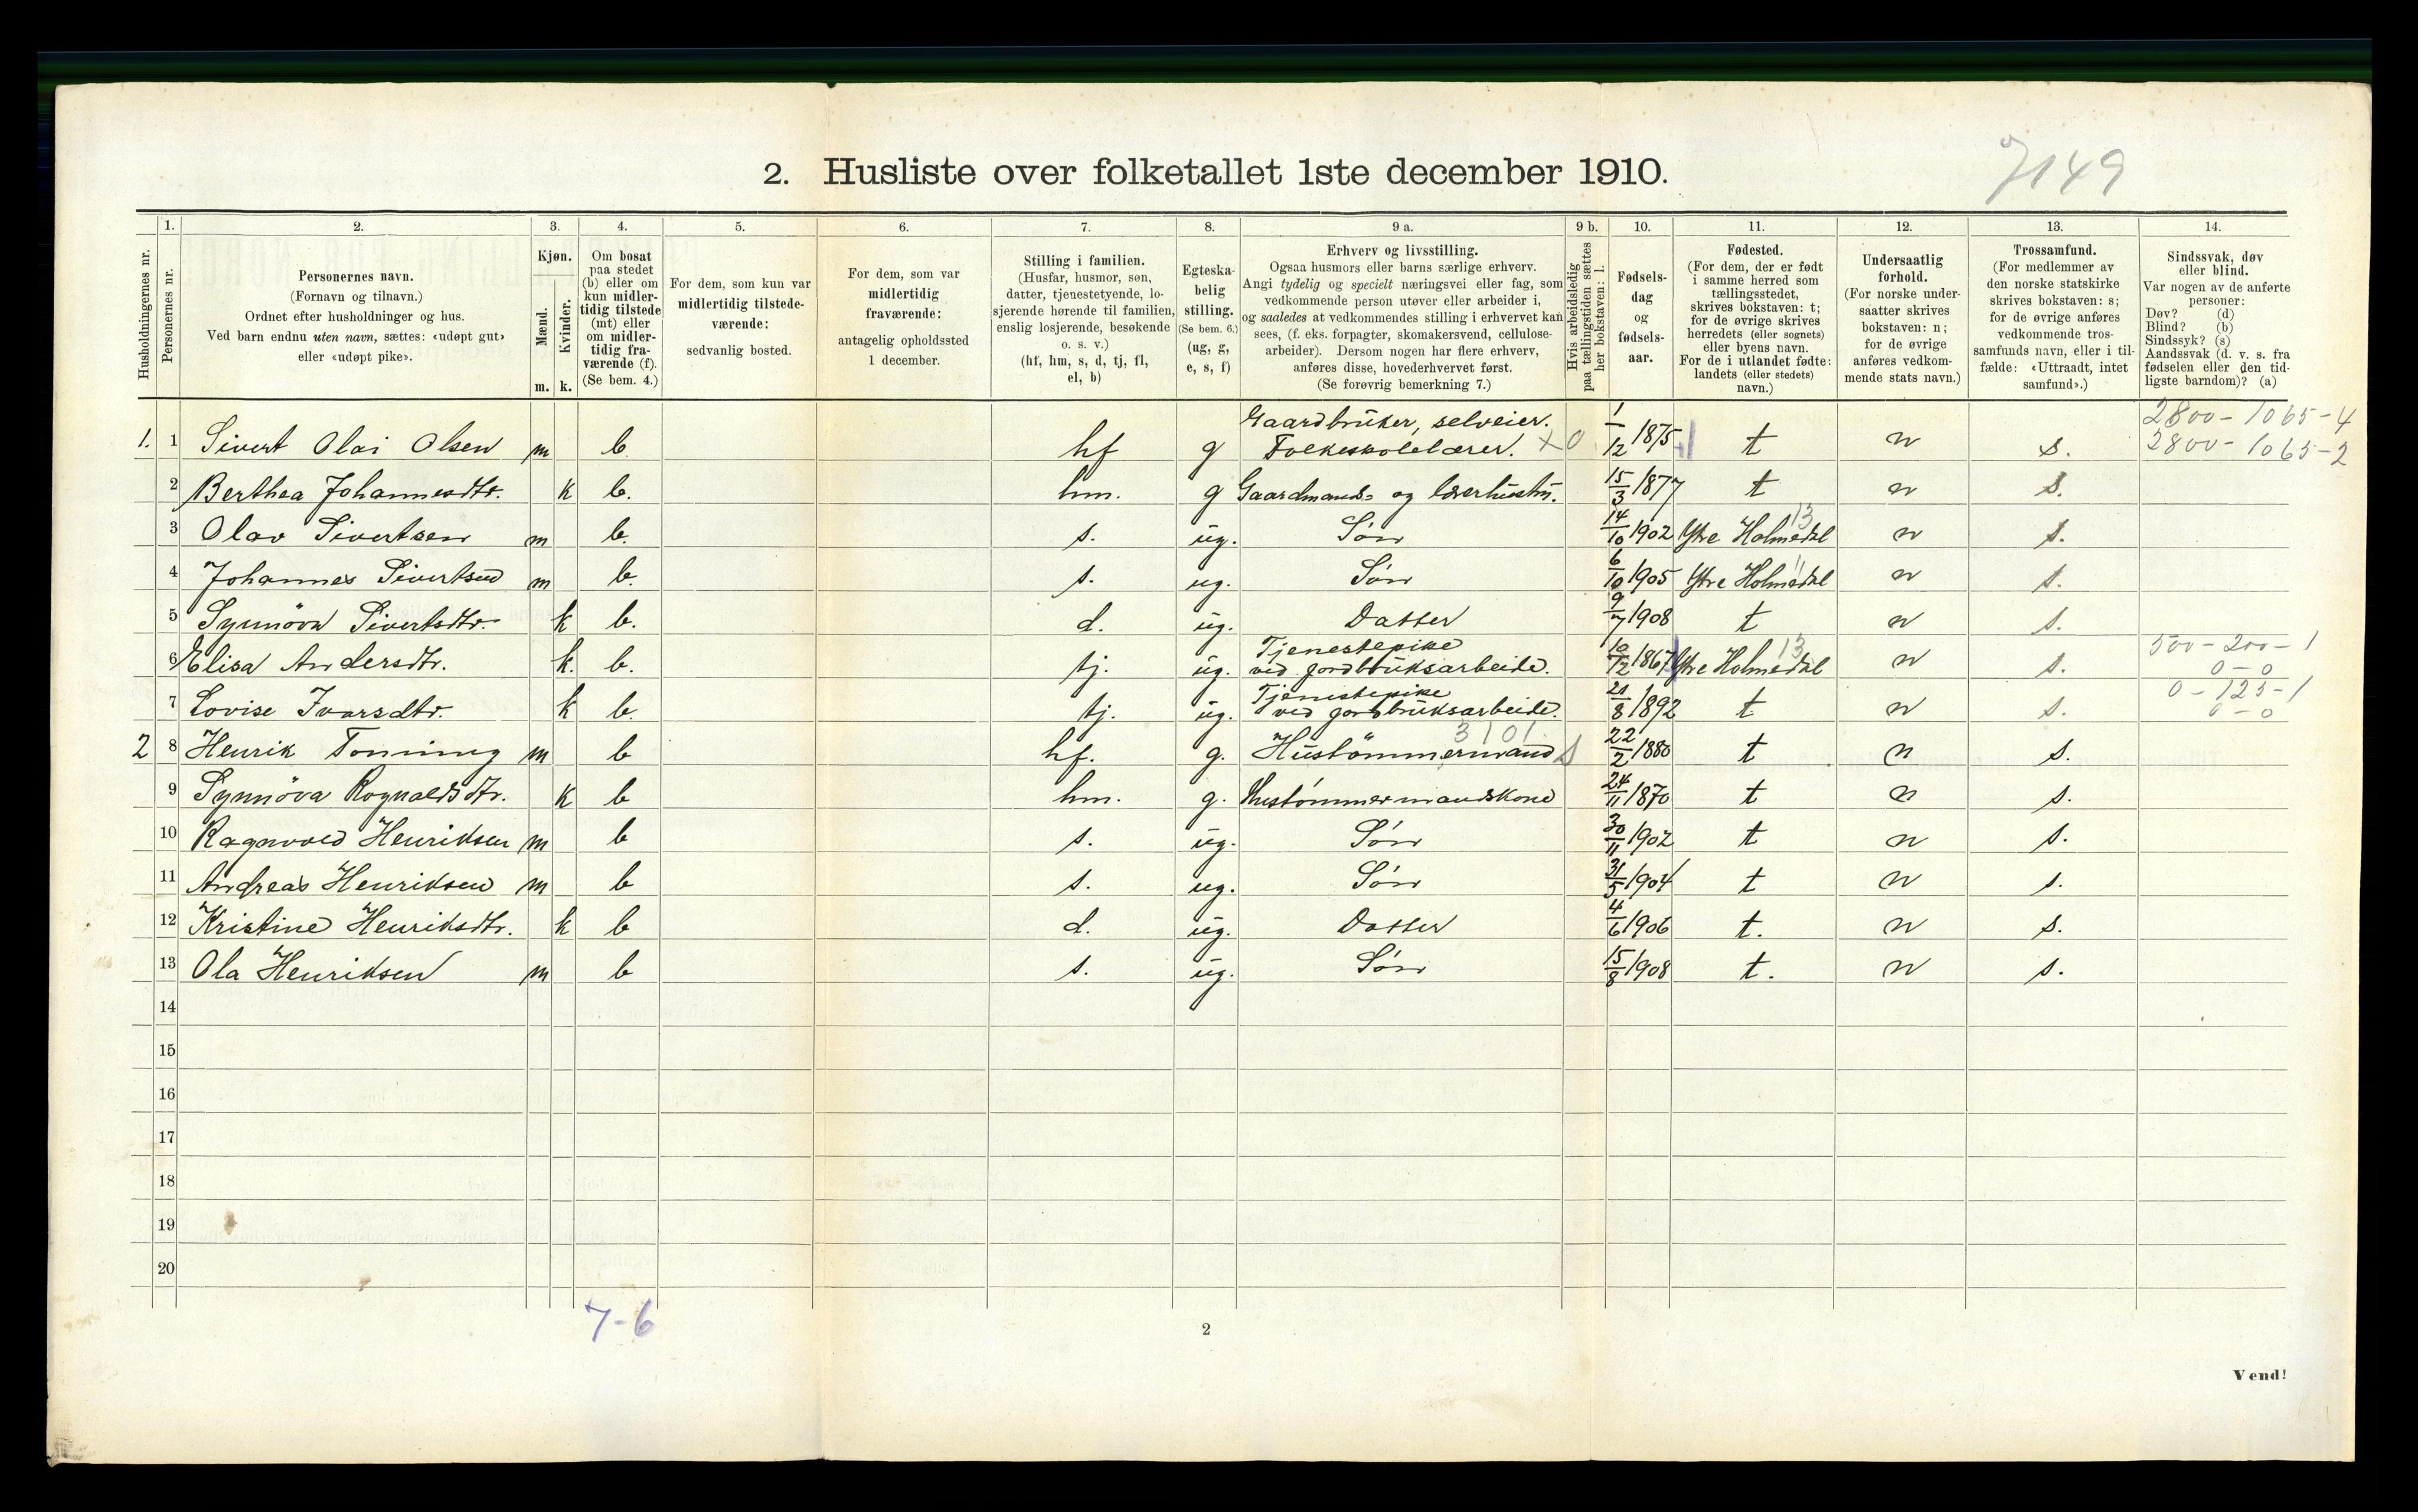 7149
2. Husliste over folketallet 1ste december 1910.
1. 2. 3. 4. 5. 6. 7. 8. 9 a. 9 b. 10. 11. 12. 13. 14.
Husholdningernes nr.
Personernes nr.
Personernes navn.
(Fornavn og tilnavn.)
Ordnet efter husholdninger og hus.
Ved barn endnu uten navn, sættes: «udøpt gut»
eller «udøpt pike».
Kjøn.
Mænd.
Kvinder.
m. k.
Om bosat
paa stedet
(b) eller om
kun midler-
tidig tilstede
(mt) eller
om midler-
tidig fra-
værende (f).
(Se bem. 4.)
For dem, som kun var
midlertidig tilstede-
værende:
sedvanlig bosted.
For dem, som var
midlertidig
fraværende:
antagelig opholdssted
1 december.
Stilling i familien.
(Husfar, husmor, søn,
datter, tjenestetyende, lo-
sjerende hørende til familien,
enslig losjerende, besøkende
o. s. v.)
(hf, hm, s, d, tj, fl,
el, b)
Egteska-
belig
stilling.
(Se bem. 6.)
(ug, g,
e, s, f)
Erhverv og livsstilling.
Ogsaa husmors eller barns særlige erhverv.
Angi tydelig og specielt næringsvei eller fag, som
vedkommende person utøver eller arbeider i,
og saaledes at vedkommendes stilling i erhvervet kan
sees, (f. eks. forpagter, skomakersvend, cellulose-
arbeider). Dersom nogen har flere erhverv,
anføres disse, hovederhvervet først.
(Se forøvrig bemerkning 7.)
Hvis arbeidsledig
paa tællingstiden sættes
her bokstaven: l.
Fødsels-
dag
og
fødsels-
aar.
Fødested.
(For dem, der er født
i samme herred som
tællingsstedet,
skrives bokstaven: t;
for de øvrige skrives
herredets (eller sognets)
eller byens navn.
For de i utlandet fødte:
landets (eller stedets)
navn.)
Undersaatlig
forhold.
(For norske under-
saatter skrives
bokstaven: n;
for de øvrige
anføres vedkom-
mende stats navn.)
Trossamfund.
(For medlemmer av
den norske statskirke
skrives bokstaven: s;
for de øvrige anføres
vedkommende tros-
samfunds navn, eller i til-
fælde: «Uttraadt, intet
samfund».)
Sindssvak, døv
eller blind.
Var nogen av de anførte
personer:
Døv? (d)
Blind? (b)
Sindssyk? (s)
Aandssvak (d. v. s. fra
fødselen eller den tid-
ligste barndom)? (a)
Gaardbruker, selveier. 2800-1065-4
1. 1 Sivert Olai Olsen m b hf g Folkeskolelærer. x 0 1/12 1875 t n s. 2800-1065-2
2 Berthea Johannesdtr. k b. hm. g Gaardmands- og lærerhustru. 15/3 1877 t n s.
3 Olav Sivertsen m b. s. ug. Søn 14/10 1902 Ytre Holmedal 13 n s.
4 Johannes Sivertsen m b. s. ug. Søn 6/10 1905 Ytre Holmedal n s.
5 Synnöva Sivertsdtr. k b. d. ug. Datter 9/7 1908 t n s.
Tjenestepike 500-200-1
6 Elisa Andersdtr. k. b. tj. ug. ved jordbruksarbeide. 10/12 1867 Ytre Holmedal 13 n s. 0-0
Tjenestepike 0-125-1
7 Lovise Ivarsdtr. k b. tj. ug. ved jordbruksarbeide. 21/8 1892 t n s. 0-0
3101
2 8 Henrik Tonning m b hf. g. Hustömmermand s 22/2 1880 t n s.
9 Synnöva Rognaldsdtr. k b hm. g. Hustömmermandskone 24/11 1870 t n s.
10 Ragnvald Henriksen m b s. ug. Søn 30/11 1902 t n s.
11 Andreas Henriksen m b s. ug. Søn 31/5 1904 t n s.
12 Kristine Henriksdtr. k b d. ug. Datter 4/6 1906 t. n s.
13 Ola Henriksen m b s. ug. Søn 15/8 1908 t. n s.
14
15
16
17
18
19
20
7-6
2
Vend!